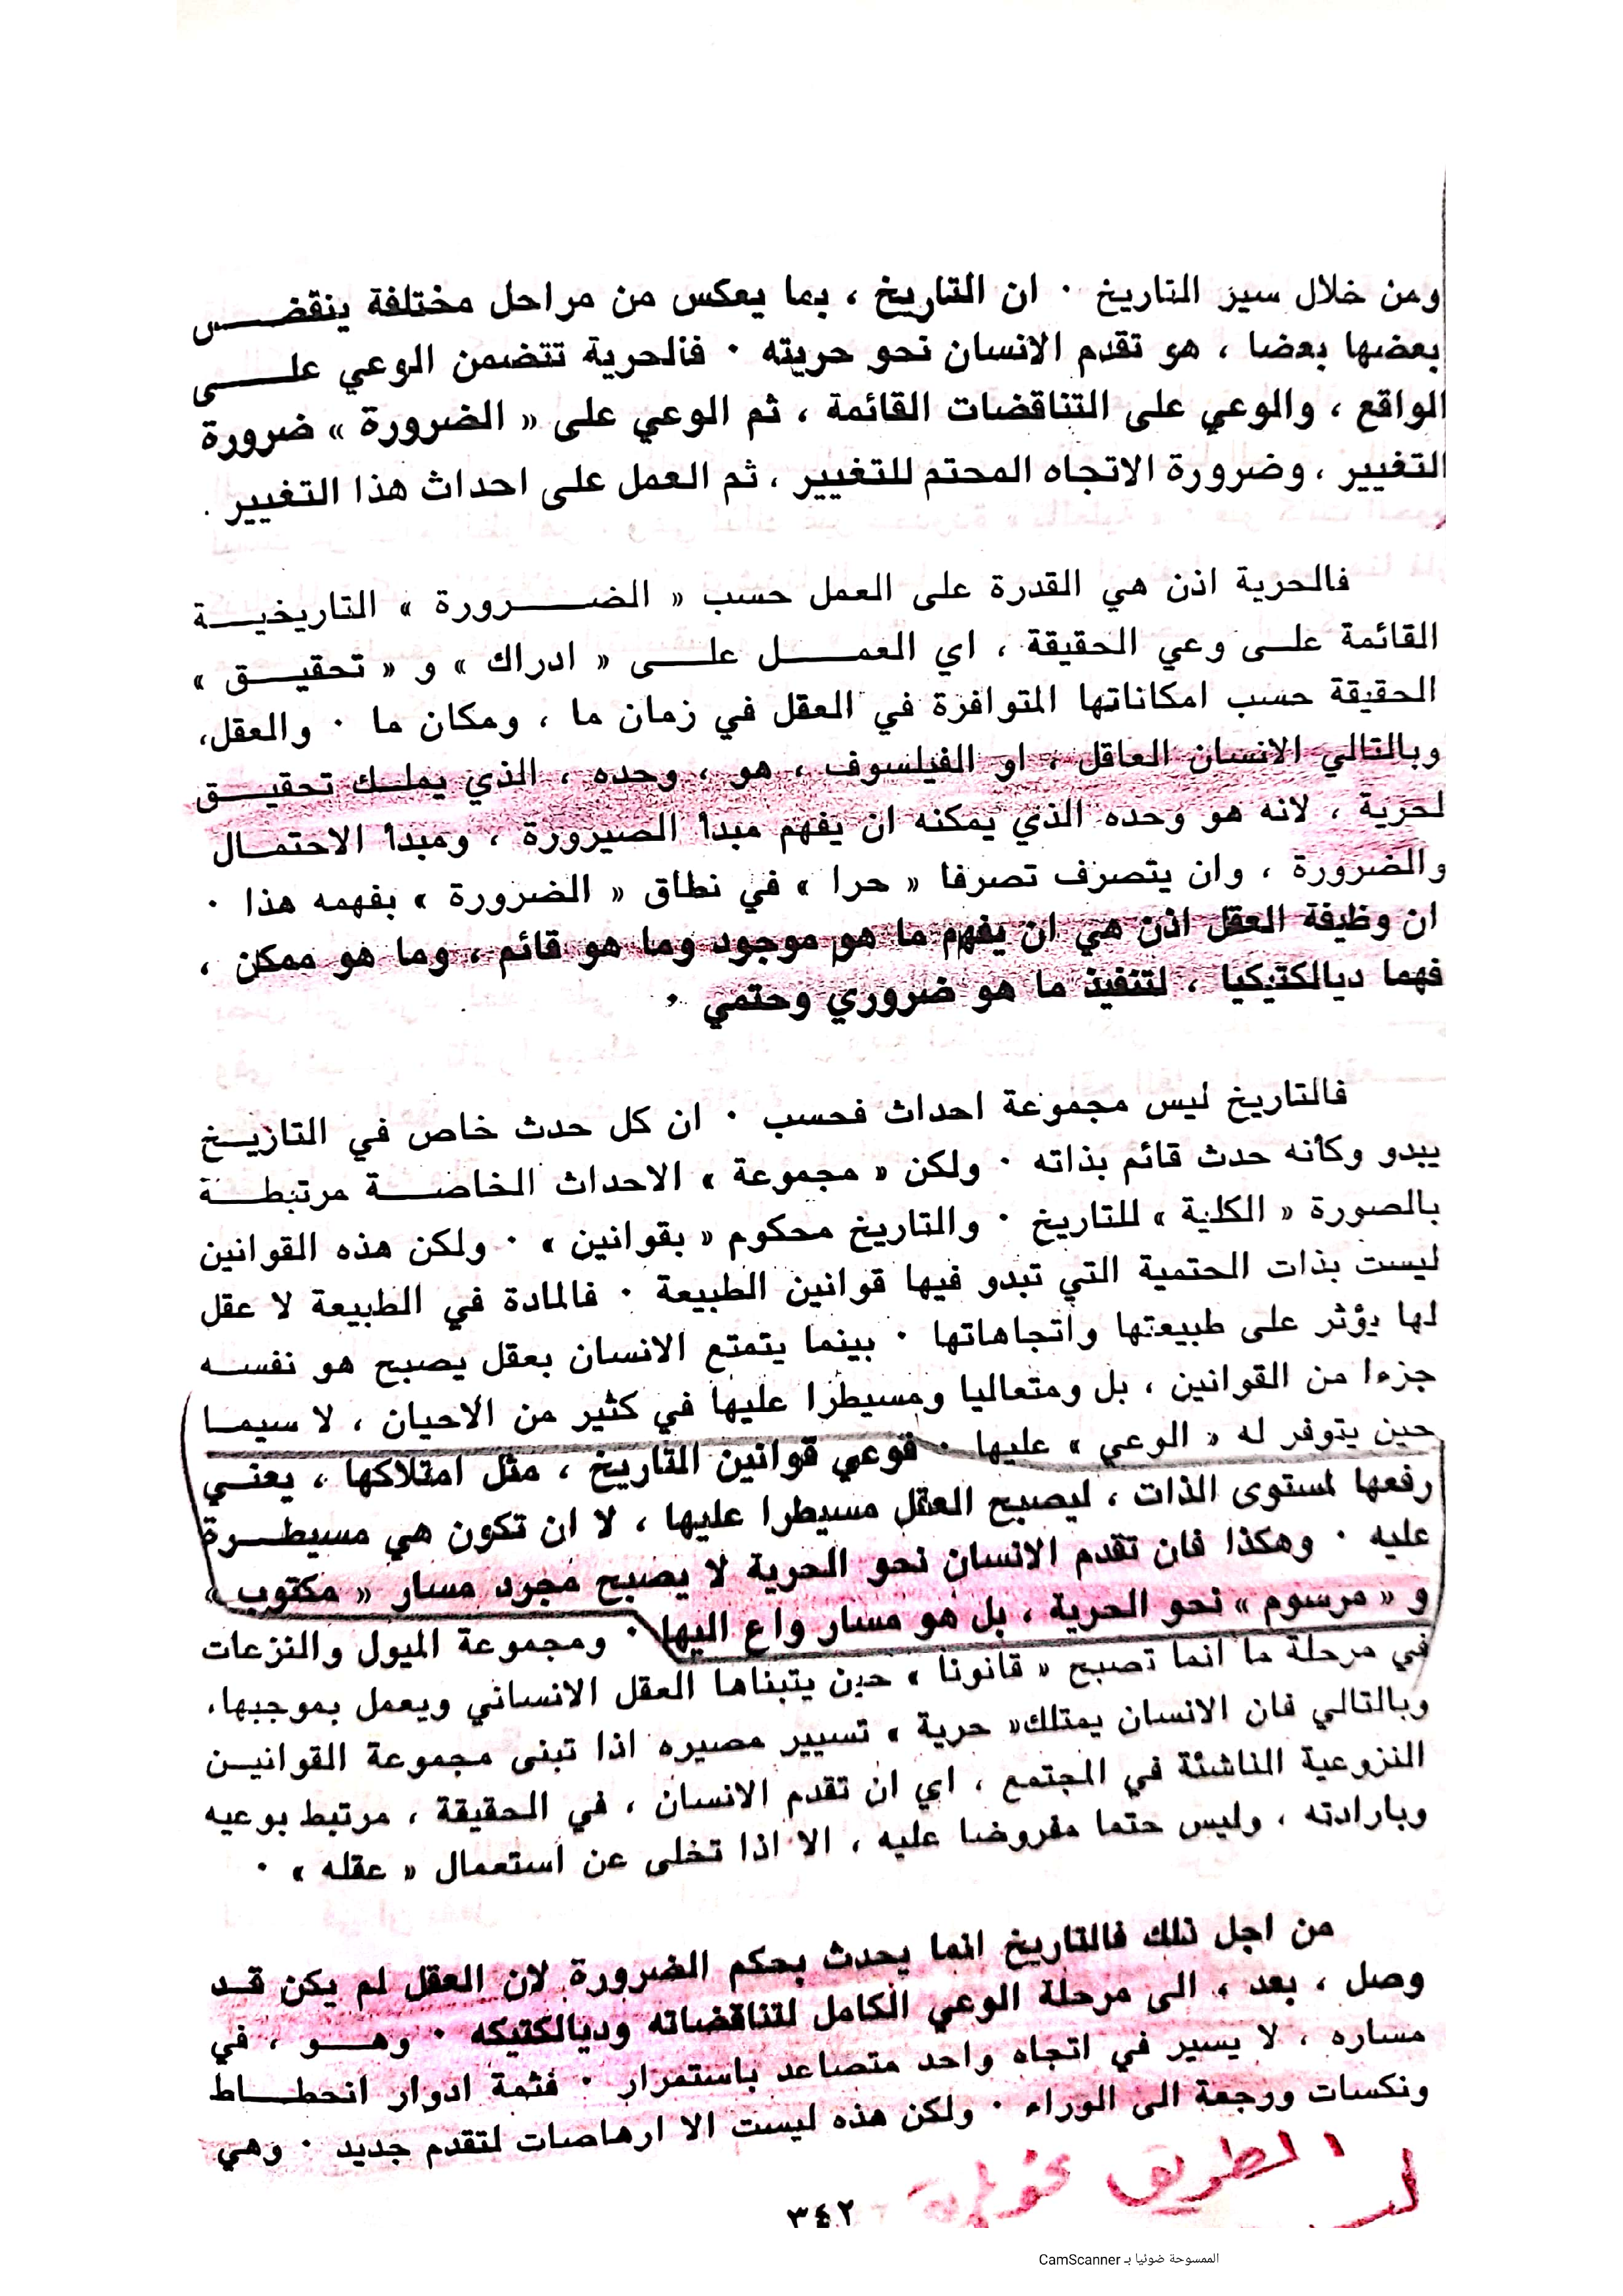 ومن خلال سير التاريخ ٠ ان التاريخ ، بما يعكس من مراحل مختلفة ينقض
بعضها بعضا ، هو تقدم الانسان نحو حريته ٠ فالحرية تتضمن الوعي على
الواقع ، والوعي على التناقضات القائمة ، ثم الوعي على « الضرورة » ضرورة
التغيير ، وضرورة الاتجاه المحتم للتغيير ، ثم العمل على احداث هذا التغيير ٠
فالحرية اذن هي القدرة على العمل حسب « الضرورة » التاريخية
القائمة على وعي الحقيقة ، اي العمل على « ادراك » و « تحقيق »
الحقيقة حسب امكاناتها المتوافرة في العقل في زمان ما ، ومكان ما ٠ والعقل،
وبالتالي الانسان العاقل ، او الفيلسوف ، هو ، وحده ، الذي يملك تحقيق
لحرية ، لانه هو وحده الذي يمكنه ان يفهم مبدأ الصيرورة ، ومبدأ الاحتمال
والضرورة ، وان يتصرف تصرفا « حرا » في نطاق « الضرورة » بفهمه هذا ٠
ان وظيفة العقل اذن هي ان يفهم ما هو موجود وما هو قائم ، وما هو ممكن ،
فهما ديالكتيكيا ، لتنفيذ ما هو ضروري وحتمي ٠
فالتاريخ ليس مجموعة احداث فحسب ٠ ان كل حدث خاص في التاريخ
يبدو وكأنه حدث قائم بذاته ٠ ولكن « مجموعة » الاحداث الخاصة مرتبطة
بالصورة « الكلية » للتاريخ ٠ والتاريخ محكوم « بقوانين » ٠ ولكن هذه القوانين
ليست بذات الحتمية التي تبدو فيها قوانين الطبيعة ٠ فالمادة في الطبيعة لا عقل
لها يؤثر على طبيعتها واتجاهاتها ٠ بينما يتمتع الانسان بعقل يصبح هو نفسه
جزءا من القوانين ، بل ومتعاليا ومسيطرا عليها في كثير من الاحيان ، لا سيما
حين يتوفر له « الوعي » عليها ٠ فوعي قوانين التاريخ ، مثل امتلاكها ، يعني
رفعها لمستوى الذات ، ليصبح العقل مسيطرا عليها ، لا ان تكون هي مسيطرة
عليه ٠ وهكذا فان تقدم الانسان نحو الحرية لا يصبح مجرد مسار « مكتوب »
و « مرسوم » نحو الحرية ، بل هو مسار واع اليها ٠ ومجموعة الميول والنزعات
في مرحلة ما انما تصبح « قانونا » حين يتبناها العقل الانساني ويعمل بموجبها،
وبالتالي فان الانسان يمتلك« حرية » تسيير مصيره اذا تبنى مجموعة القوانين
النزوعية الناشئة في المجتمع ، اي ان تقدم الانسان ، في الحقيقة ، مرتبط بوعيه
وبارادته ، وليس حتما مفروضا عليه ، الا اذا تخلى عن استعمال « عقله » ٠
من اجل ذلك فالتاريخ انما يحدث بحكم الضرورة لان العقل لم يكن قد
وصل ، بعد ، الى مرحلة الوعي الكامل لتناقضاته وديالكتيكه ٠ وهو ، في
مساره ، لا يسير في اتجاه واحد متصاعد باستمرار ٠ فثمة ادوار انحطاط
ونكسات ورجعة الى الوراء ٠ ولكن هذه ليست الا ارهاصات لتقدم جديد ٠ وهي
الطريق
٣٤٢
الممسوحة ضوئيا بـ CamScanner